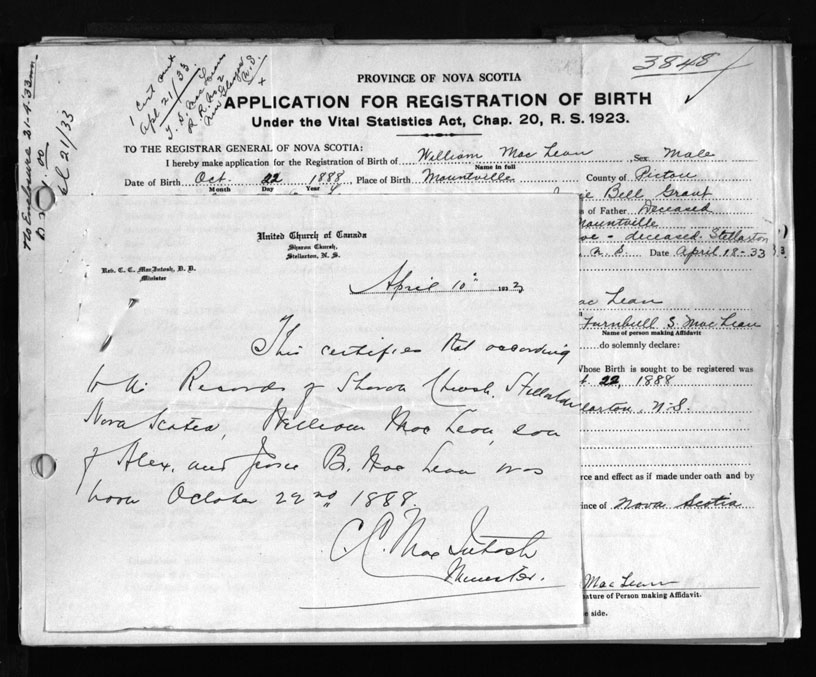 3848
1 Cert sent
Apl 21/33
T. S. MacLean
R. R. No 2
New Glasgow
N. S.
No Enclosure 21-4-33
21/33
PROVINCE OF NOVA SCOTIA
APPLICATION FOR REGISTRATION OF BIRTH
Under the Vital Statistics Act, Chap. 20, R. S. 1923.
TO THE REGISTRAR GENERAL OF NOVA SCOTIA:
I hereby make application for the Registration of Birth of William Mac Lean Sex Male
Name in full
Date of Birth Oct. 22 1888 Place of Birth Mountville County of Pictou
Month Day Year
Bell Grant
of Father Deceased
Mountville
deceased Stellarton
N. S. Date April 18-33
United Church of Canada
Sharon Church,
Stellarton, N. S.
Rev. C. C. MacIntosh, D. D.
Minister
April 10" 1933
This certifies that according
to the Records of Sharon Church, Stellarton
Nova Scotia, William Mac Lean, son
of Alex. and Jessie B. Mac Lean was
born October 22nd 1888.
C. C. Mac Intosh
Minister.
Mac Lean
Turnbull S. Mac Lean
Name of person making Affidavit
do solemnly declare:
Whose Birth is sought to be registered was
22, 1888
N-S.
rce and effect as if made under oath and by
ince of Nova Scotia
Mac Lean
nature of Person making Affidavit.
e side.